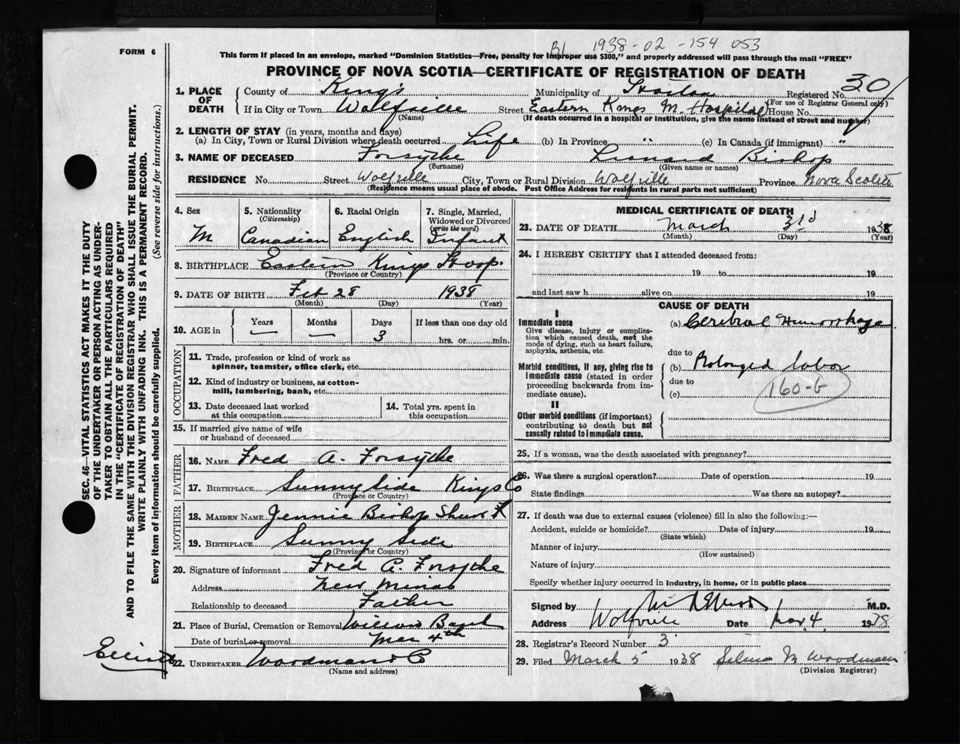 FORM 6
This form if placed in an envelope, marked "Dominion Statistics—Free, penalty for improper use $300," and properly addressed will pass through the mail "FREE"
1938-02-154 053
PROVINCE OF NOVA SCOTIA—CERTIFICATE OF REGISTRATION OF DEATH
1. PLACE OF DEATH County of Kings Municipality of Registered No. 301
(For use of Registrar General only)
If in City or Town Wolfville Street Eastern Kings M. Hospital House No.
(Name) (If death occurred in a hospital or institution, give the name instead of street and number)
2. LENGTH OF STAY (in years, months and days)
(a) In City, Town or Rural Division where death occurred Life (b) In Province " (c) In Canada (if immigrant) "
3. NAME OF DECEASED Forsythe Bishop
(Surname) (Given name or names)
RESIDENCE No. Street Wolfville City, Town or Rural Division Wolfville Province Nova Scotia
(Residence means usual place of abode. Post Office Address for residents in rural parts not sufficient)
4. Sex M
5. Nationality (Citizenship) Canadian
6. Racial Origin English
7. Single, Married, Widowed or Divorced (write the word) Infant
8. BIRTHPLACE Eastern Kings Hosp.
(Province or Country)
9. DATE OF BIRTH Feb 28 1938
(Month) (Day) (Year)
10. AGE in Years — Months — Days 3 If less than one day old hrs. or min.
OCCUPATION
11. Trade, profession or kind of work as spinner, teamster, office clerk, etc.
12. Kind of industry or business, as cotton-mill, lumbering, bank, etc.
13. Date deceased last worked at this occupation
14. Total yrs. spent in this occupation
15. If married give name of wife or husband of deceased
FATHER
16. NAME Fred A. Forsythe
17. BIRTHPLACE Sunnyside Kings Co
(Province or Country)
MOTHER
18. MAIDEN NAME Jennie Bishop
19. BIRTHPLACE Sunny Side
(Province or Country)
20. Signature of informant Fred A. Forsythe
Address New Minas
Relationship to deceased Father
21. Place of Burial, Cremation or Removal
Date of burial or removal Mar 4th
22. UNDERTAKER
(Name and address)
MEDICAL CERTIFICATE OF DEATH
23. DATE OF DEATH March 3rd 1938
(Month) (Day) (Year)
24. I HEREBY CERTIFY that I attended deceased from:
19 to 19
and last saw h alive on 19
CAUSE OF DEATH
I
Immediate cause
Give disease, injury or complication which caused death, not the mode of dying, such as heart failure, asphyxia, asthenia, etc.
(a) Cerebral Hemorrhage
due to
Morbid conditions, if any, giving rise to immediate cause (stated in order proceeding backwards from immediate cause).
(b) Prolonged labor
due to
(c) 160-G
II
Other morbid conditions (if important) contributing to death but not causally related to immediate cause.
25. If a woman, was the death associated with pregnancy?
26. Was there a surgical operation? Date of operation 19
State findings Was there an autopsy?
27. If death was due to external causes (violence) fill in also the following:—
Accident, suicide or homicide? Date of injury 19
(State which)
Manner of injury
(How sustained)
Nature of injury
Specify whether injury occurred in industry, in home, or in public place
Signed by M.D.
Address Wolfville Date Mar 4 1938
28. Registrar's Record Number 3
29. Filed March 5 1938 M Woodman
(Division Registrar)
SEC. 46—VITAL STATISTICS ACT MAKES IT THE DUTY
OF THE UNDERTAKER OR PERSON ACTING AS UNDER-
TAKER TO OBTAIN ALL THE PARTICULARS REQUIRED
IN THE "CERTIFICATE OF REGISTRATION OF DEATH"
AND TO FILE THE SAME WITH THE DIVISION REGISTRAR WHO SHALL ISSUE THE BURIAL PERMIT.
WRITE PLAINLY WITH UNFADING INK. THIS IS A PERMANENT RECORD.
Every item of information should be carefully supplied. (See reverse side for instructions.)